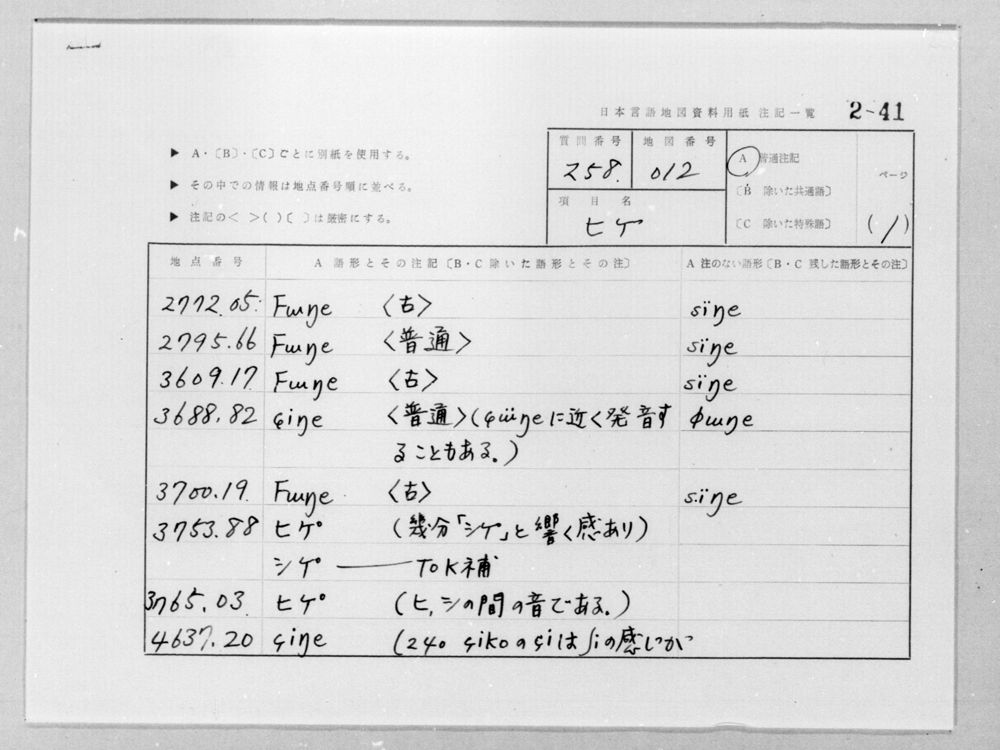 日本言語地図資料用紙 注記一覧 2-41
▶ A・〔B〕・〔C〕ごとに別紙を使用する。
▶ その中での情報は地点番号順に並べる。
▶ 注記の< >( )〔 〕は厳密にする。
質問番号 地図番号
258. 012
項目名
ヒゲ
A 普通注記
〔B 除いた共通語〕
〔C 除いた特殊語〕
ページ
(1)
地点番号 A 語形とその注記〔B・C 除いた語形とその注〕 A 注のない語形〔B・C 残した語形とその注〕
2772.05 Fɯŋe 〈古〉 sïŋe
2795.66 Fɯŋe 〈普通〉 sïŋe
3609.17 Fɯŋe 〈古〉 sïŋe
3688.82 çiŋe 〈普通〉(çüŋeに近く発音す ɸɯŋe
ることもある。)
3700.19 Fɯŋe 〈古〉 sïŋe
3753.88 ヒケ゚ (幾分「シケ゚」と響く感あり)
シケ゚ ── TOK補
3765.03 ヒケ゚ (ヒ,シの間の音である。)
4637.20 çiŋe (240 çikoのçiはʃiの感じが